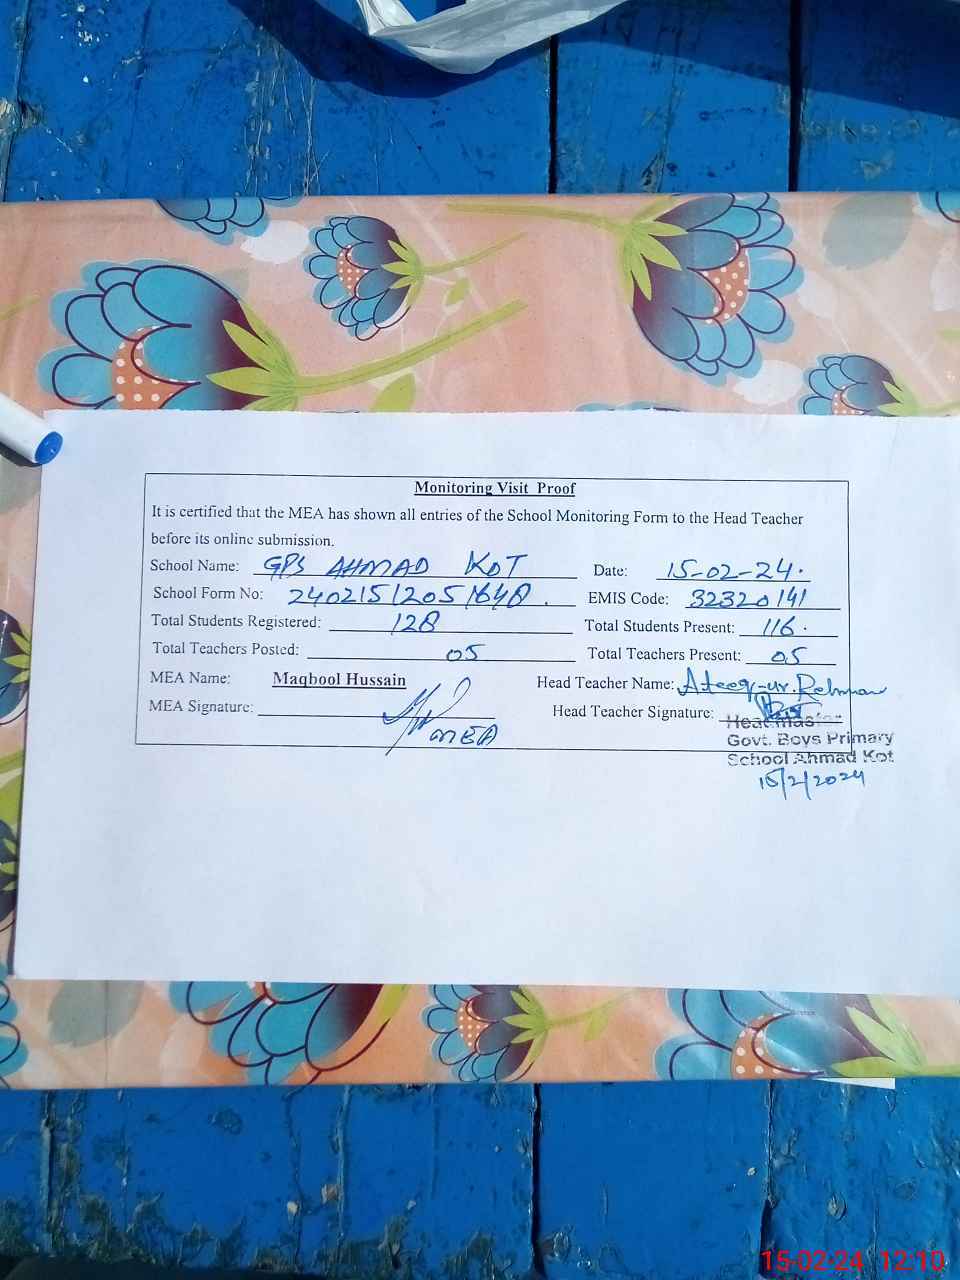 Monitoring Visit Proof
It is certified that the MEA has shown all entries of the School Monitoring Form to the Head Teacher
before its online submission.
School Name: GPS AHMAD KOT Date: 15-02-24.
School Form No: 24021512051648. EMIS Code: 32320141
Total Students Registered: 128 Total Students Present: 116.
Total Teachers Posted: 05 Total Teachers Present: 05
MEA Name: Maqbool Hussain Head Teacher Name: Ateeq-ur-Rehman
MEA Signature: MEA Head Teacher Signature:
Head Master
Govt. Boys Primary
School Ahmad Kot
15/2/2024
15-02-24 12:10